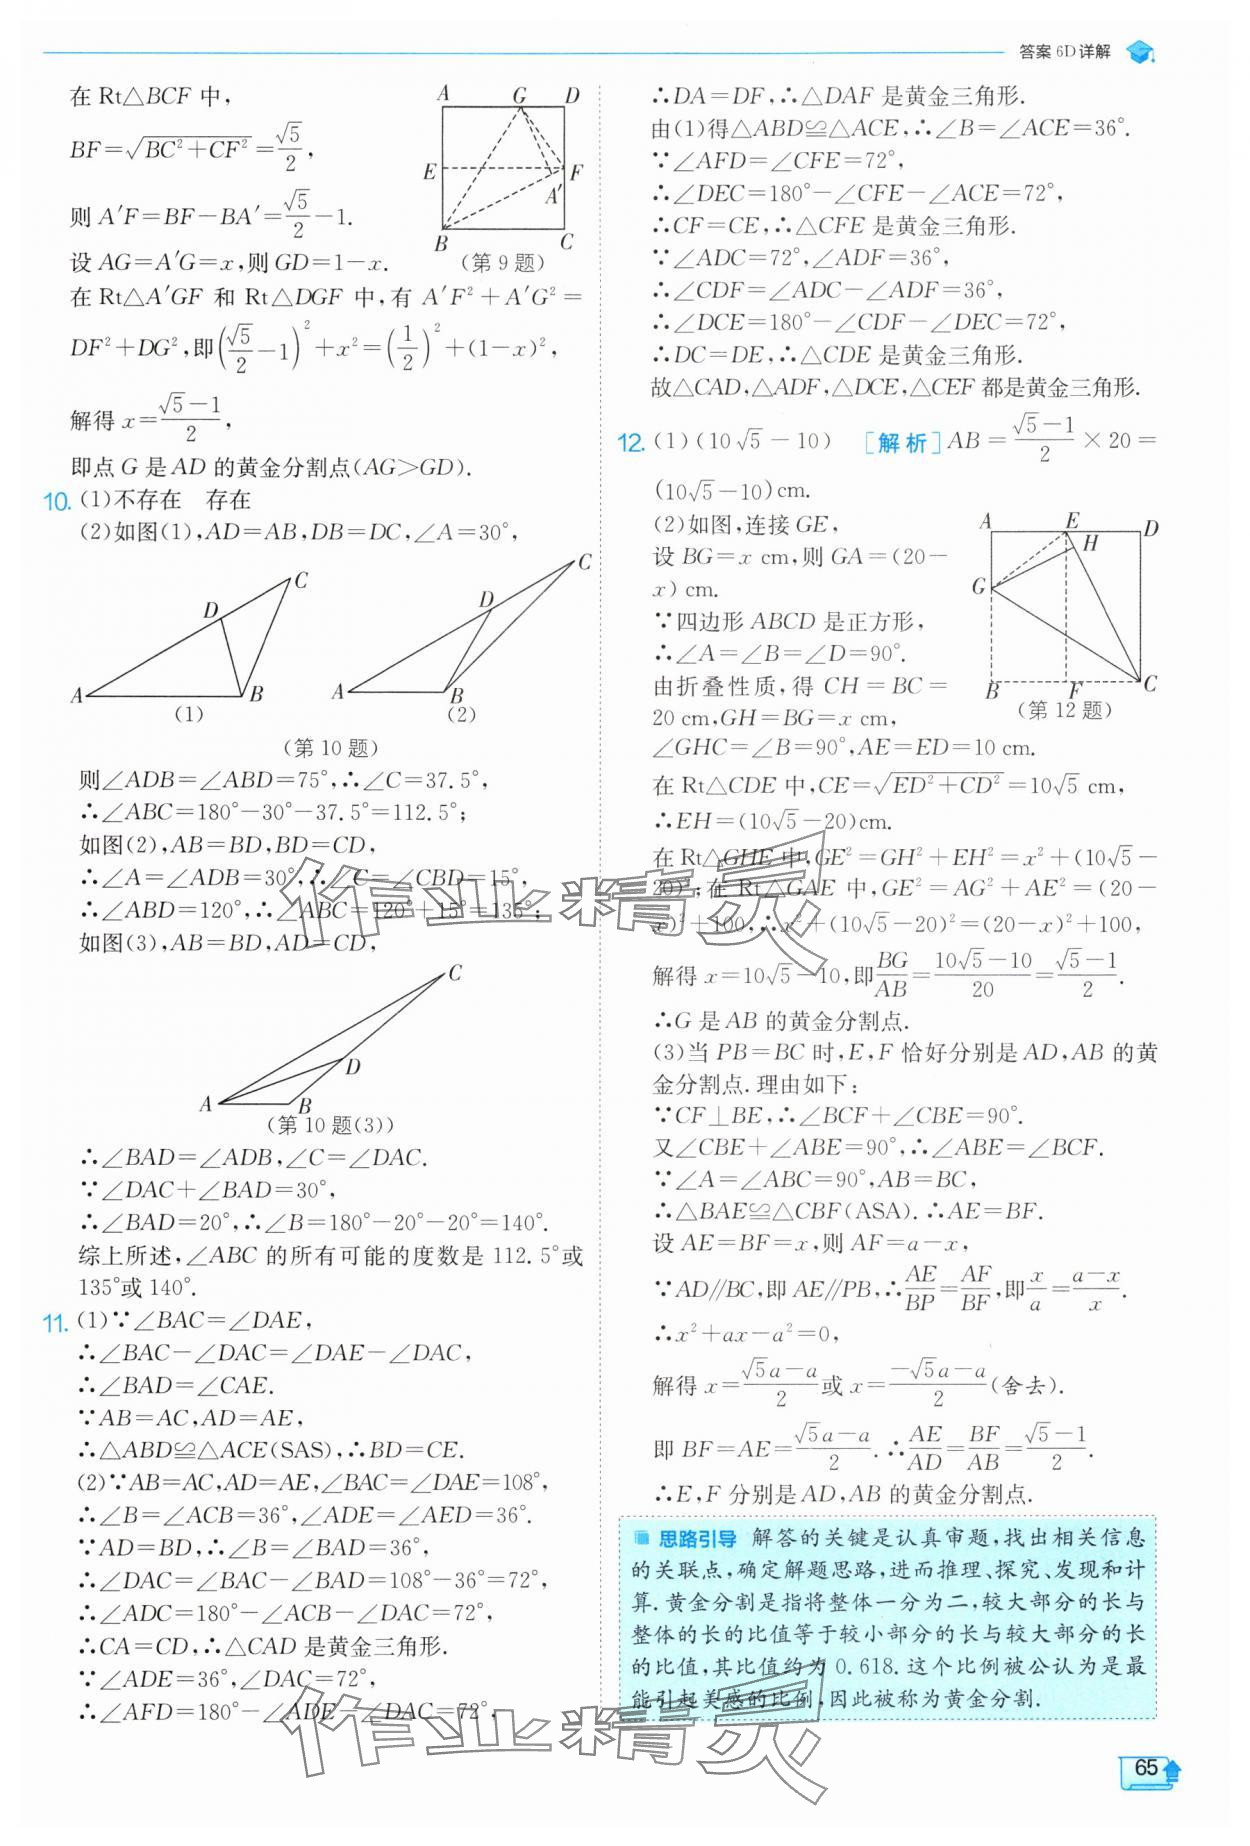 答案 6D详解
在 Rt△BCF 中，
BF=√(BC²+CF²)=√5/2，
则 A′F=BF−BA′=√5/2−1.
设 AG=A′G=x，则 GD=1−x.
A G D
E F
A′
B C
(第 9 题)
在 Rt△A′GF 和 Rt△DGF 中，有 A′F²+A′G²=
DF²+DG²，即(√5/2−1)²+x²=(1/2)²+(1−x)²，
解得 x=(√5−1)/2，
即点 G 是 AD 的黄金分割点(AG>GD).
10. (1)不存在　存在
(2)如图(1)，AD=AB，DB=DC，∠A=30°，
A B C D
(1)
A B C D
(2)
(第 10 题)
则∠ADB=∠ABD=75°，∴∠C=37.5°，
∴∠ABC=180°−30°−37.5°=112.5°；
如图(2)，AB=BD，BD=CD，
∴∠A=∠ADB=30°，∴∠C=∠CBD=15°，
∴∠ABD=120°，∴∠ABC=120°+15°=135°；
如图(3)，AB=BD，AD=CD，
A B C D
(第 10 题(3))
∴∠BAD=∠ADB，∠C=∠DAC.
∵∠DAC+∠BAD=30°，
∴∠BAD=20°，∴∠B=180°−20°−20°=140°.
综上所述，∠ABC 的所有可能的度数是 112.5°或
135°或 140°.
11. (1)∵∠BAC=∠DAE，
∴∠BAC−∠DAC=∠DAE−∠DAC，
∴∠BAD=∠CAE.
∵AB=AC，AD=AE，
∴△ABD≌△ACE(SAS)，∴BD=CE.
(2)∵AB=AC，AD=AE，∠BAC=∠DAE=108°，
∴∠B=∠ACB=36°，∠ADE=∠AED=36°.
∵AD=BD，∴∠B=∠BAD=36°，
∴∠DAC=∠BAC−∠BAD=108°−36°=72°，
∴∠ADC=180°−∠ACB−∠DAC=72°，
∴CA=CD，∴△CAD 是黄金三角形.
∵∠ADE=36°，∠DAC=72°，
∴∠AFD=180°−∠ADE−∠DAC=72°，
∴DA=DF，∴△DAF 是黄金三角形.
由(1)得△ABD≌△ACE，∴∠B=∠ACE=36°.
∵∠AFD=∠CFE=72°，
∴∠DEC=180°−∠CFE−∠ACE=72°，
∴CF=CE，∴△CFE 是黄金三角形.
∵∠ADC=72°，∠ADF=36°，
∴∠CDF=∠ADC−∠ADF=36°，
∴∠DCE=180°−∠CDF−∠DEC=72°，
∴DC=DE，∴△CDE 是黄金三角形.
故△CAD，△ADF，△DCE，△CEF 都是黄金三角形.
12. (1) (10√5−10)　[解析]AB=(√5−1)/2×20=
(10√5−10)cm.
(2)如图，连接 GE，
设 BG=x cm，则 GA=(20−
x) cm.
∵四边形 ABCD 是正方形，
∴∠A=∠B=∠D=90°.
由折叠性质，得 CH=BC=
20 cm，GH=BG=x cm，
A E D
H
G
B F C
(第 12 题)
∠GHC=∠B=90°，AE=ED=10 cm.
在 Rt△CDE 中，CE=√(ED²+CD²)=10√5 cm，
∴EH=(10√5−20)cm.
在 Rt△GHE 中，GE²=GH²+EH²=x²+(10√5−
20)²；在 Rt△GAE 中，GE²=AG²+AE²=(20−
x)²+100，∴x²+(10√5−20)²=(20−x)²+100，
解得 x=10√5−10，即BG/AB=(10√5−10)/20=(√5−1)/2.
∴G 是 AB 的黄金分割点.
(3)当 PB=BC 时，E，F 恰好分别是 AD，AB 的黄
金分割点.理由如下：
∵CF⊥BE，∴∠BCF+∠CBE=90°.
又∠CBE+∠ABE=90°，∴∠ABE=∠BCF.
∵∠A=∠ABC=90°，AB=BC，
∴△BAE≌△CBF(ASA).∴AE=BF.
设 AE=BF=x，则 AF=a−x，
∵AD//BC，即 AE//PB，∴AE/BP=AF/BF，即x/a=(a−x)/x.
∴x²+ax−a²=0，
解得 x=(√5a−a)/2或 x=(−√5a−a)/2(舍去).
即 BF=AE=(√5a−a)/2.∴AE/AD=BF/AB=(√5−1)/2.
∴E，F 分别是 AD，AB 的黄金分割点.
思路引导　解答的关键是认真审题，找出相关信息
的关联点，确定解题思路，进而推理、探究、发现和计
算.黄金分割是指将整体一分为二，较大部分的长与
整体的长的比值等于较小部分的长与较大部分的长
的比值，其比值约为 0.618.这个比例被公认为是最
能引起美感的比例，因此被称为黄金分割.
作业精灵
作业精灵
65